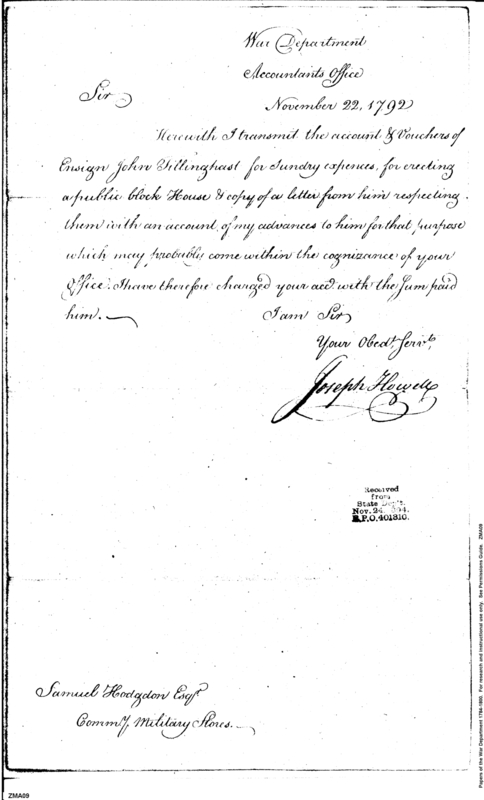 War Department
Accountants Office
November 22, 1792
Sir
Herewith I transmit the account & Vouchers of
Ensign John Tillinghast for Sundry expences, for erecting
a public block House & copy of a letter from him respecting
them with an account, of my advances to him for that purpose
which may probably come within the cognizance of your
Office. I have therefore charged your acct. with the Sum paid
him.
I am Sir
Your Obedt. Servt.
Joseph Howell
Received
from
State Dep't.
Nov. 24,
R.P.O. 401310.
Samuel Hodgdon Esqr.
Commy. Military Stores.
ZMA09
Papers of the War Department 1784-1800. For research and instructional use only. See Permissions Guide. ZMA09